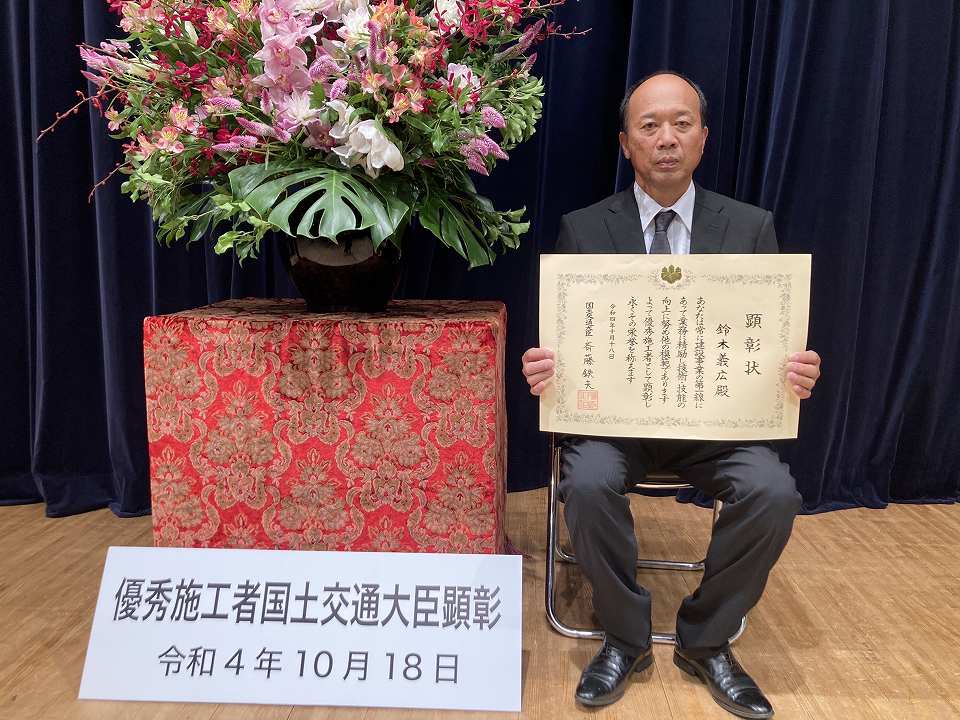 顕彰状
鈴木義広殿
あなたは常に建設事業の第一線に
あって業務に精励し技術・技能の
向上に努め他の模範であります
よって優秀施工者として顕彰し
永くその栄誉を称えます
令和四年十月十八日
国土交通大臣 斉藤鉄夫
優秀施工者国土交通大臣顕彰
令和4年10月18日